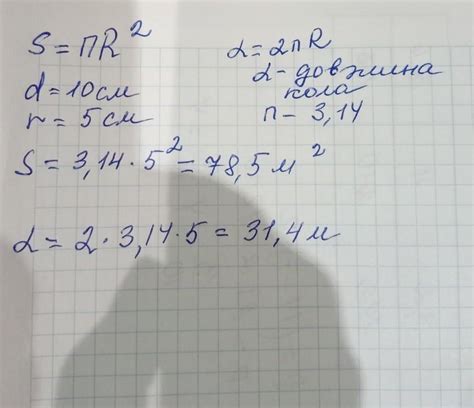 S = ПR²
d = 10 см
r = 5 см
L = 2ПR
L - довжина
кола
П - 3,14
S = 3,14 · 5² = 78,5 м²
L = 2 · 3,14 · 5 = 31,4 м